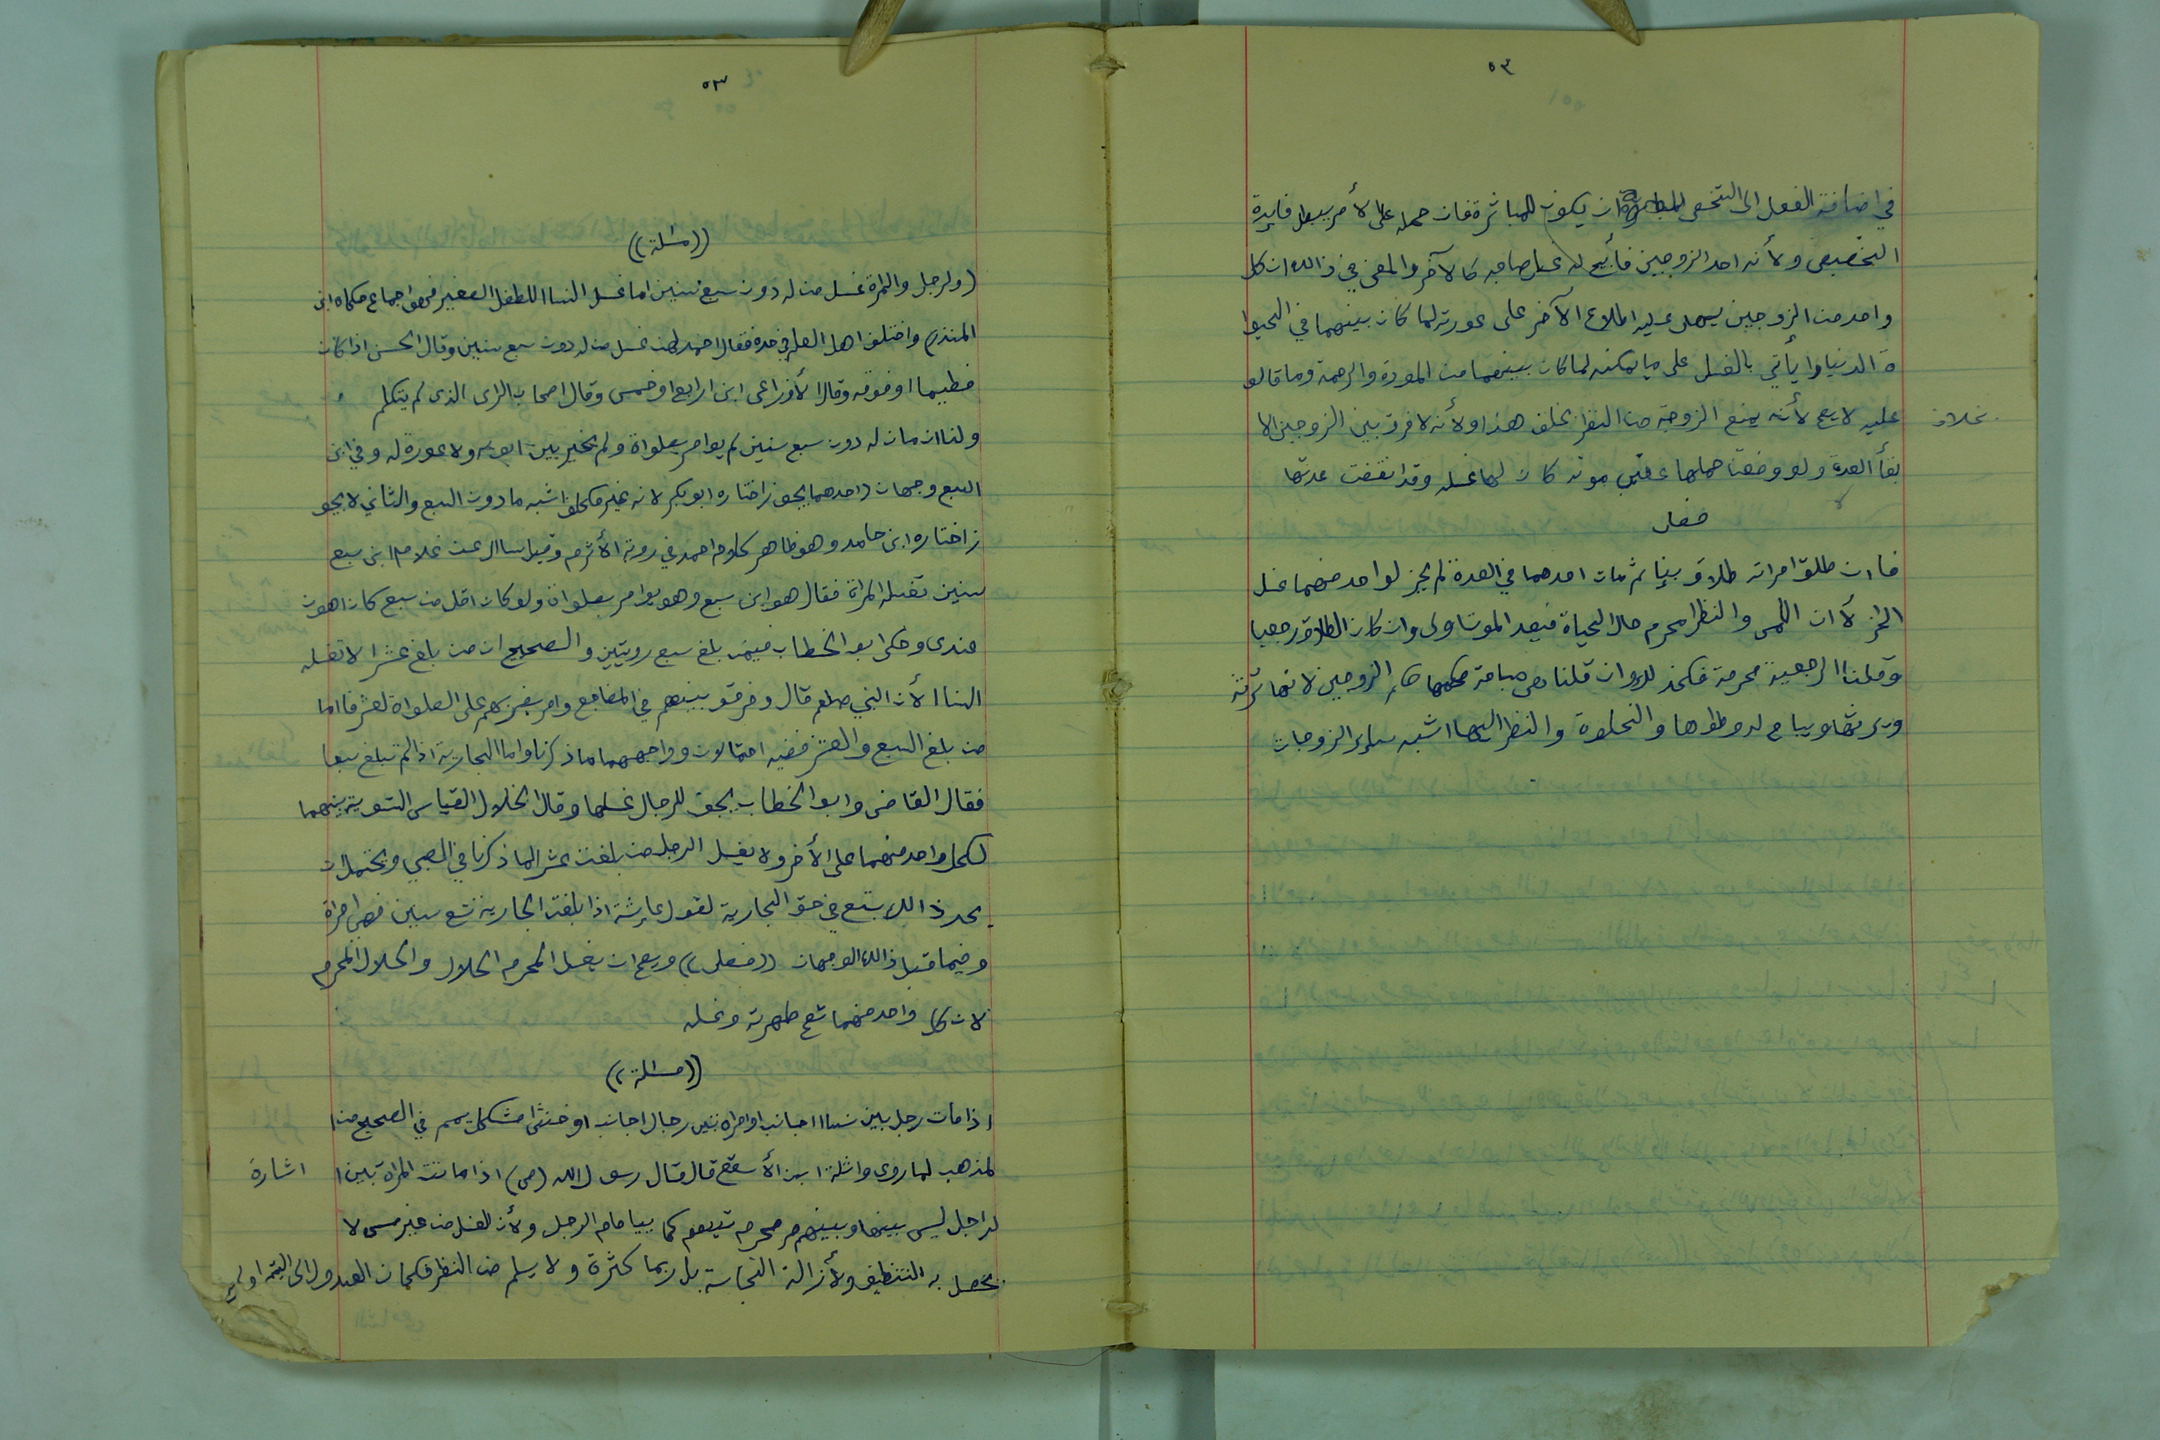 ٥٢
في اضافة الفعل الى الشخص ان يكون للمباشرة فان حمله على الأمر يبطل فايدة
التخصيص ولأنه احد الزوجين فأبيح له غسل صاحبه كالآخر والمعنى في ذالك ان كل
واحد من الزوجين يسهل عليه اطلاع الآخر على عورته لما كان بينهما في الحيوا
ة الدنيا ويأتي بالغسل على ما يمكنه لما كان بينهما من المودة والرحمة وما قالو
عليه لا يصح لأنه يمنع الزوجة من النظر بخلف هذا ولأنه لا فرق بين الزوجين الا
بخلاف
بقأ العدة ولو وضعت حملها عقيب موته كان لها غسله وقد انقضت عدتها
فصل
فاءن طلق امراته طلاق بينا ثم مات احدهما في العدة لم يجز لواحد منهما غسل
الاخر لأن اللمس والنظر محرم حال الحياة فبعد الموت اولى وان كان الطلاق رجعيا
وقلنا الرجعية محرمة فكذ لك وان قلنا هي مباحة حكمها حكم الزوجين لانها ترثه
ويرثها ويباح له وطؤها والخلوة والنظر اليها اشبه سائر الزوجات
٥٣
((مسئلة))
(ولرجل والمرة غسل من له دون سبع سنين اما غسل النسا للطفل الصغير فهو اجماع حكاه ابن
المنذر) واختلف اهل العلم في حده فقال احمد لهن غسل من له دون سبع سنين وقال الحسن اذا كان
فطيما او فوقه وقال الأوزاعى ابن اربع او خمس وقال اصحاب الراى الذى لم يتكلم
ولنا ان مان له دون سبع سنين لم يوامر بصلواة ولم يخير بين ابويه ولا عورة له وفي ابن
السبع وجهان (احدهما يجوز اختاره ابو بكر لانه غير مكلف اشبه ما دون السبع والثاني لا يجو
ز اختاره ابن حامد وهو ظاهر كلام احمد في روية الأثرم وقيل سال عن غلام ابن سبع
سنين تغسله المراة فقال هو ابن سبع وهو يوامر بصلواة ولو كان اقل من سبع كان اهون
عندى وحكى ابو الخطاب فيمن بلغ سبع رويتين والصحيح ان من بلغ عشرا لا تغسله
النسا لأن النبي صلعم قال وفرقو بينهم في المضاجع وامر بضربهم على الصلواة لعشر فاما
من بلغ السبع والعشر ففيه احتمالان ووجههما ما ذكرنا واما الجارية اذا لم تبلغ سبعا
فقال القاضى وابو الخطاب يجوز للرجال غسلها وقال الخلال القياس التسوية بينهما
لكل واحد منهما على الأخر ولا يغسل الرجل من بلغت عشرا لما ذكرنا في الصبي ويحتمل ان
يحد ذالك بتسع في حق الجارية لقول عايشة اذا بلغت الجارية تسع سنين فهى امراة
وفيما قبل ذالك الوجهان ((فصل)) ويصح ان يغسل المحرم الحلال والحلال المحرم
لان كل واحد منهما تصح طهرته وغسله
((مسئلة))
اذا مات رجل بين نسا اجانب او امراة بين رجال اجانب او خنثى مشكل يمم في الصحيح من ا
لمذهب لما روى واثلة ابن الأسقع قال قال رسول الله (ص) اذا ماتت المراة بين ا
اشارة
لراجل ليس بينها وبينهم محرم تيمم كما ييامام الرجل ولأن الغسل من غير مس لا
يحصل به التنظيف ولأزالة النجاسة بل ربما كثرة ولا يسلم من النظر فكان العدول الى التيمم اولى